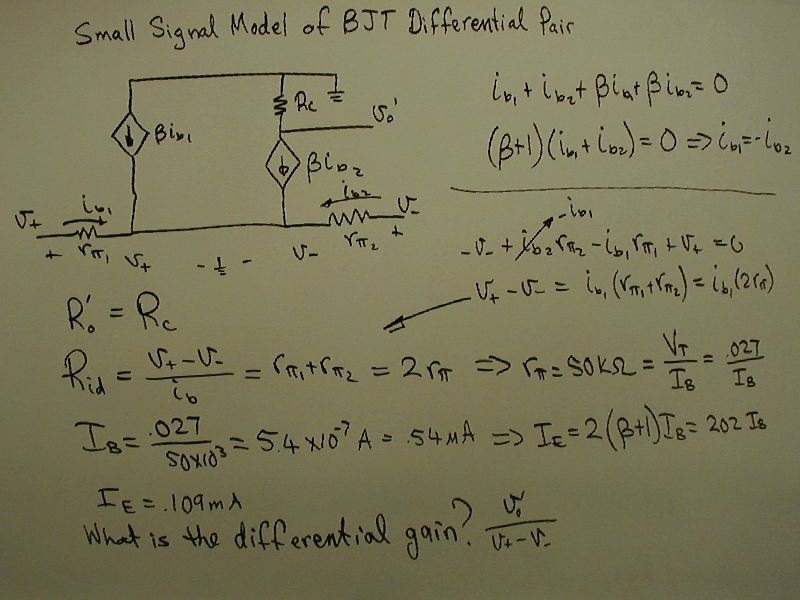 Small Signal Model of BJT Differential Pair
i_b1 + i_b2 + βi_b1 + βi_b2 = 0
(β+1)(i_b1 + i_b2) = 0 => i_b1 = -i_b2
R_c
v_o'
βi_b1
βi_b2
i_b1
i_b2
v_+
v_-
+ r_π1 v_+ - - v_- r_π2 +
-i_b1
-v_- + i_b2 r_π2 - i_b1 r_π1 + v_+ = 0
v_+ - v_- = i_b1 (r_π1 + r_π2) = i_b1 (2r_π)
R_o' = R_c
R_id = (v_+ - v_-)/i_b = r_π1 + r_π2 = 2r_π => r_π = 50KΩ = V_T/I_B = .027/I_B
I_B = .027/50x10^3 = 5.4 x10^-7 A = .54μA => I_E = 2(β+1)I_B = 202 I_B
I_E = .109mA
What is the differential gain? v_o'/(v_+ - v_-)